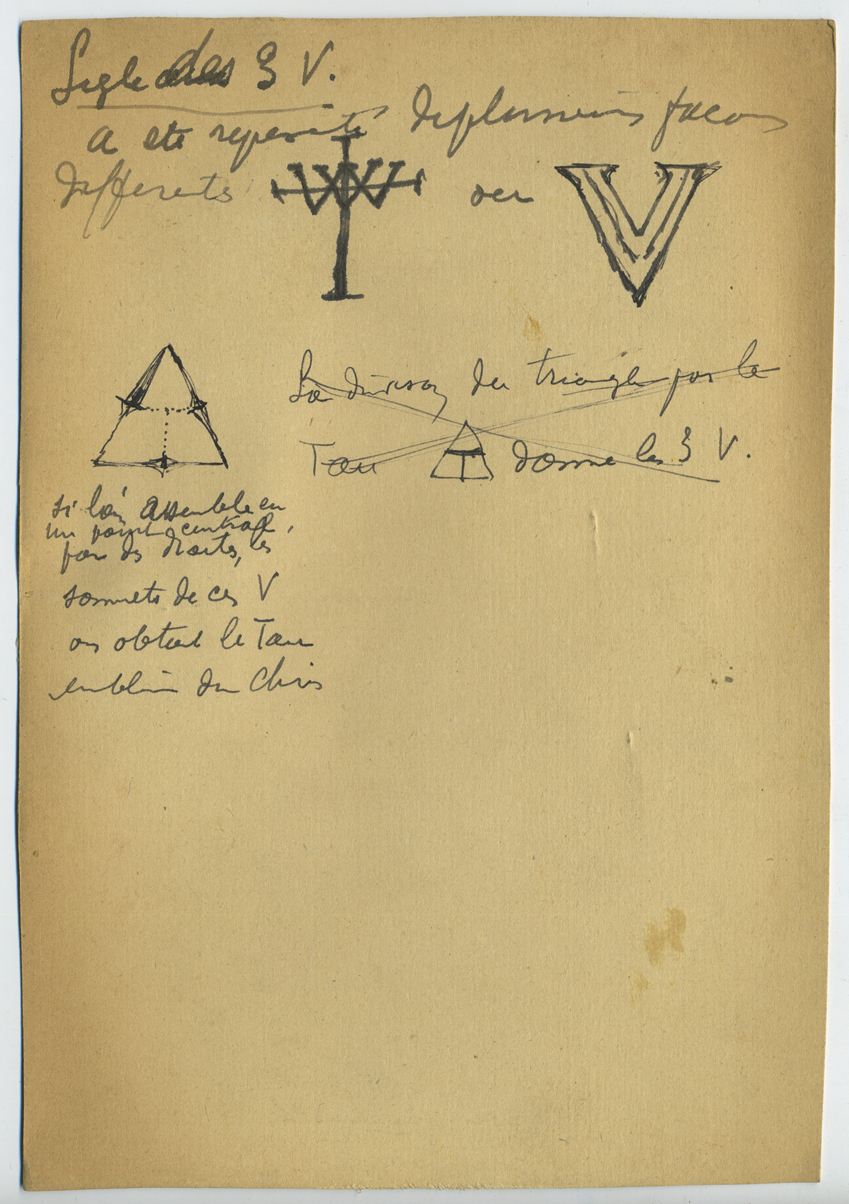 Sigle des 3 V.
a eté represénté de plusieurs facons
differents ou
La division du triangle par le
Tau donne les 3 V.
si l'on assemble en
un point central,
par des droites, les
sommets de ces V
on obtient le Tau
emblème du Chris